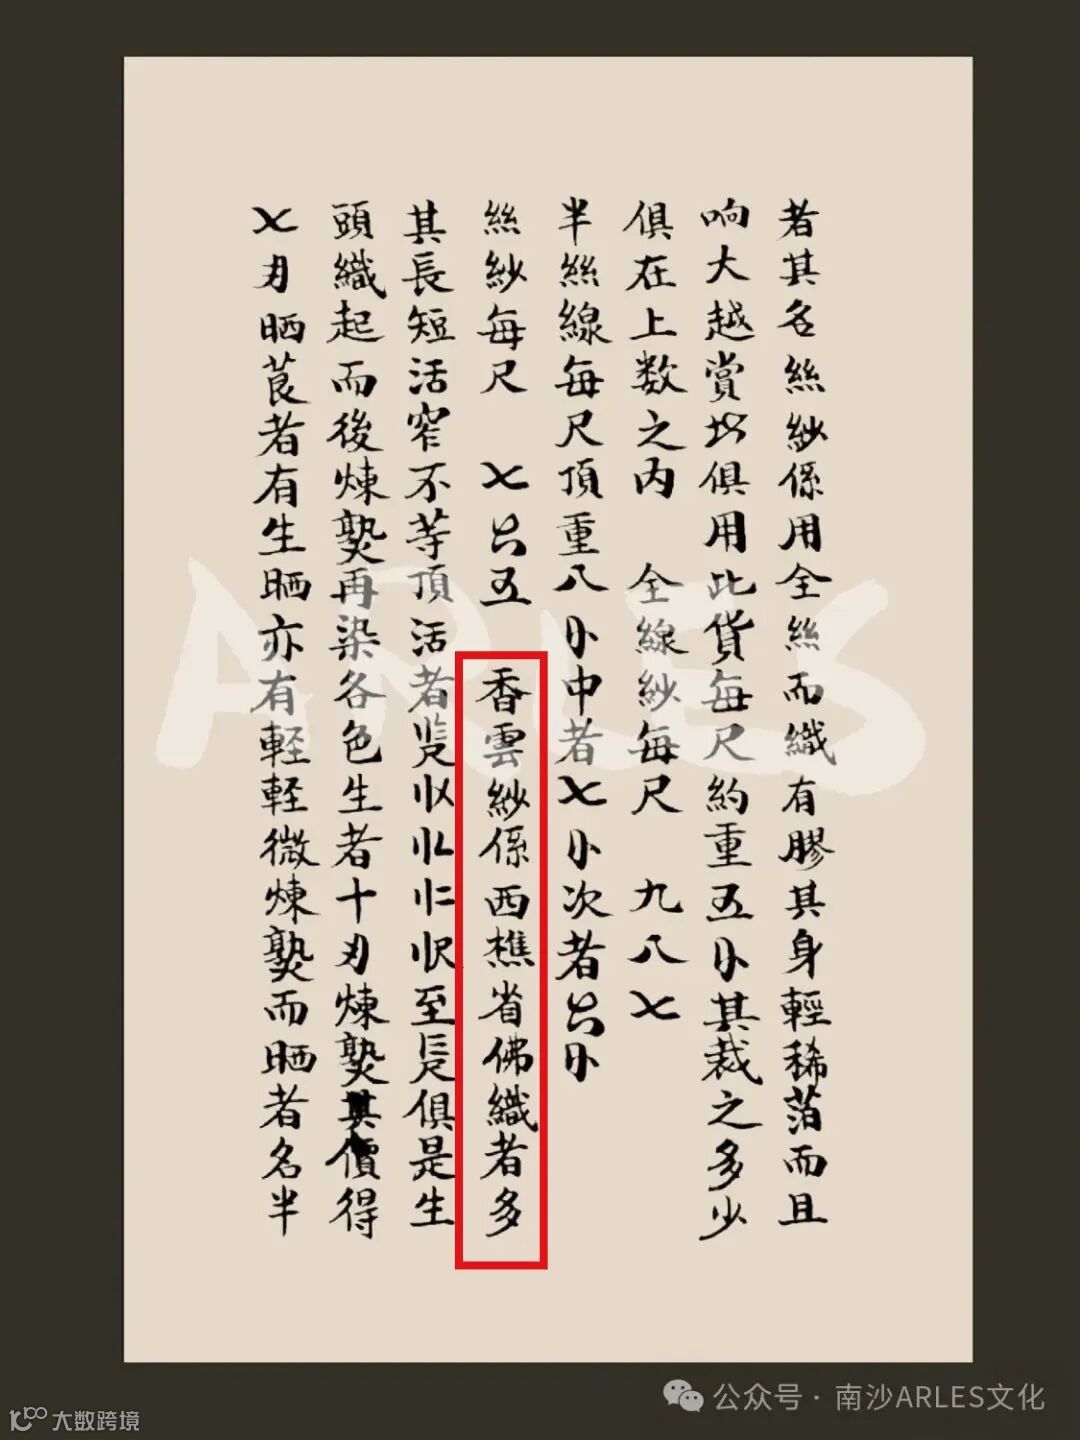 者其名絲紗係用全絲而織有膠其身輕稀箔而且
响大越賞㘰俱用此貨每尺約重五卟其裁之多少
俱在上数之内 全線紗每尺 九八七
半絲線每尺頂重八卟中者七卟次者六卟
絲紗每尺 七六五 香雲紗係西樵省佛織者多
其長短活窄不等頂活者 至 俱是生
頭織起而後煉𤍠再染各色生者十刃煉𤍠其價得
七刃晒莨者有生晒亦有輕輕微煉𤍠而晒者名半
ARLES
公众号·南沙ARLES文化
大数跨境